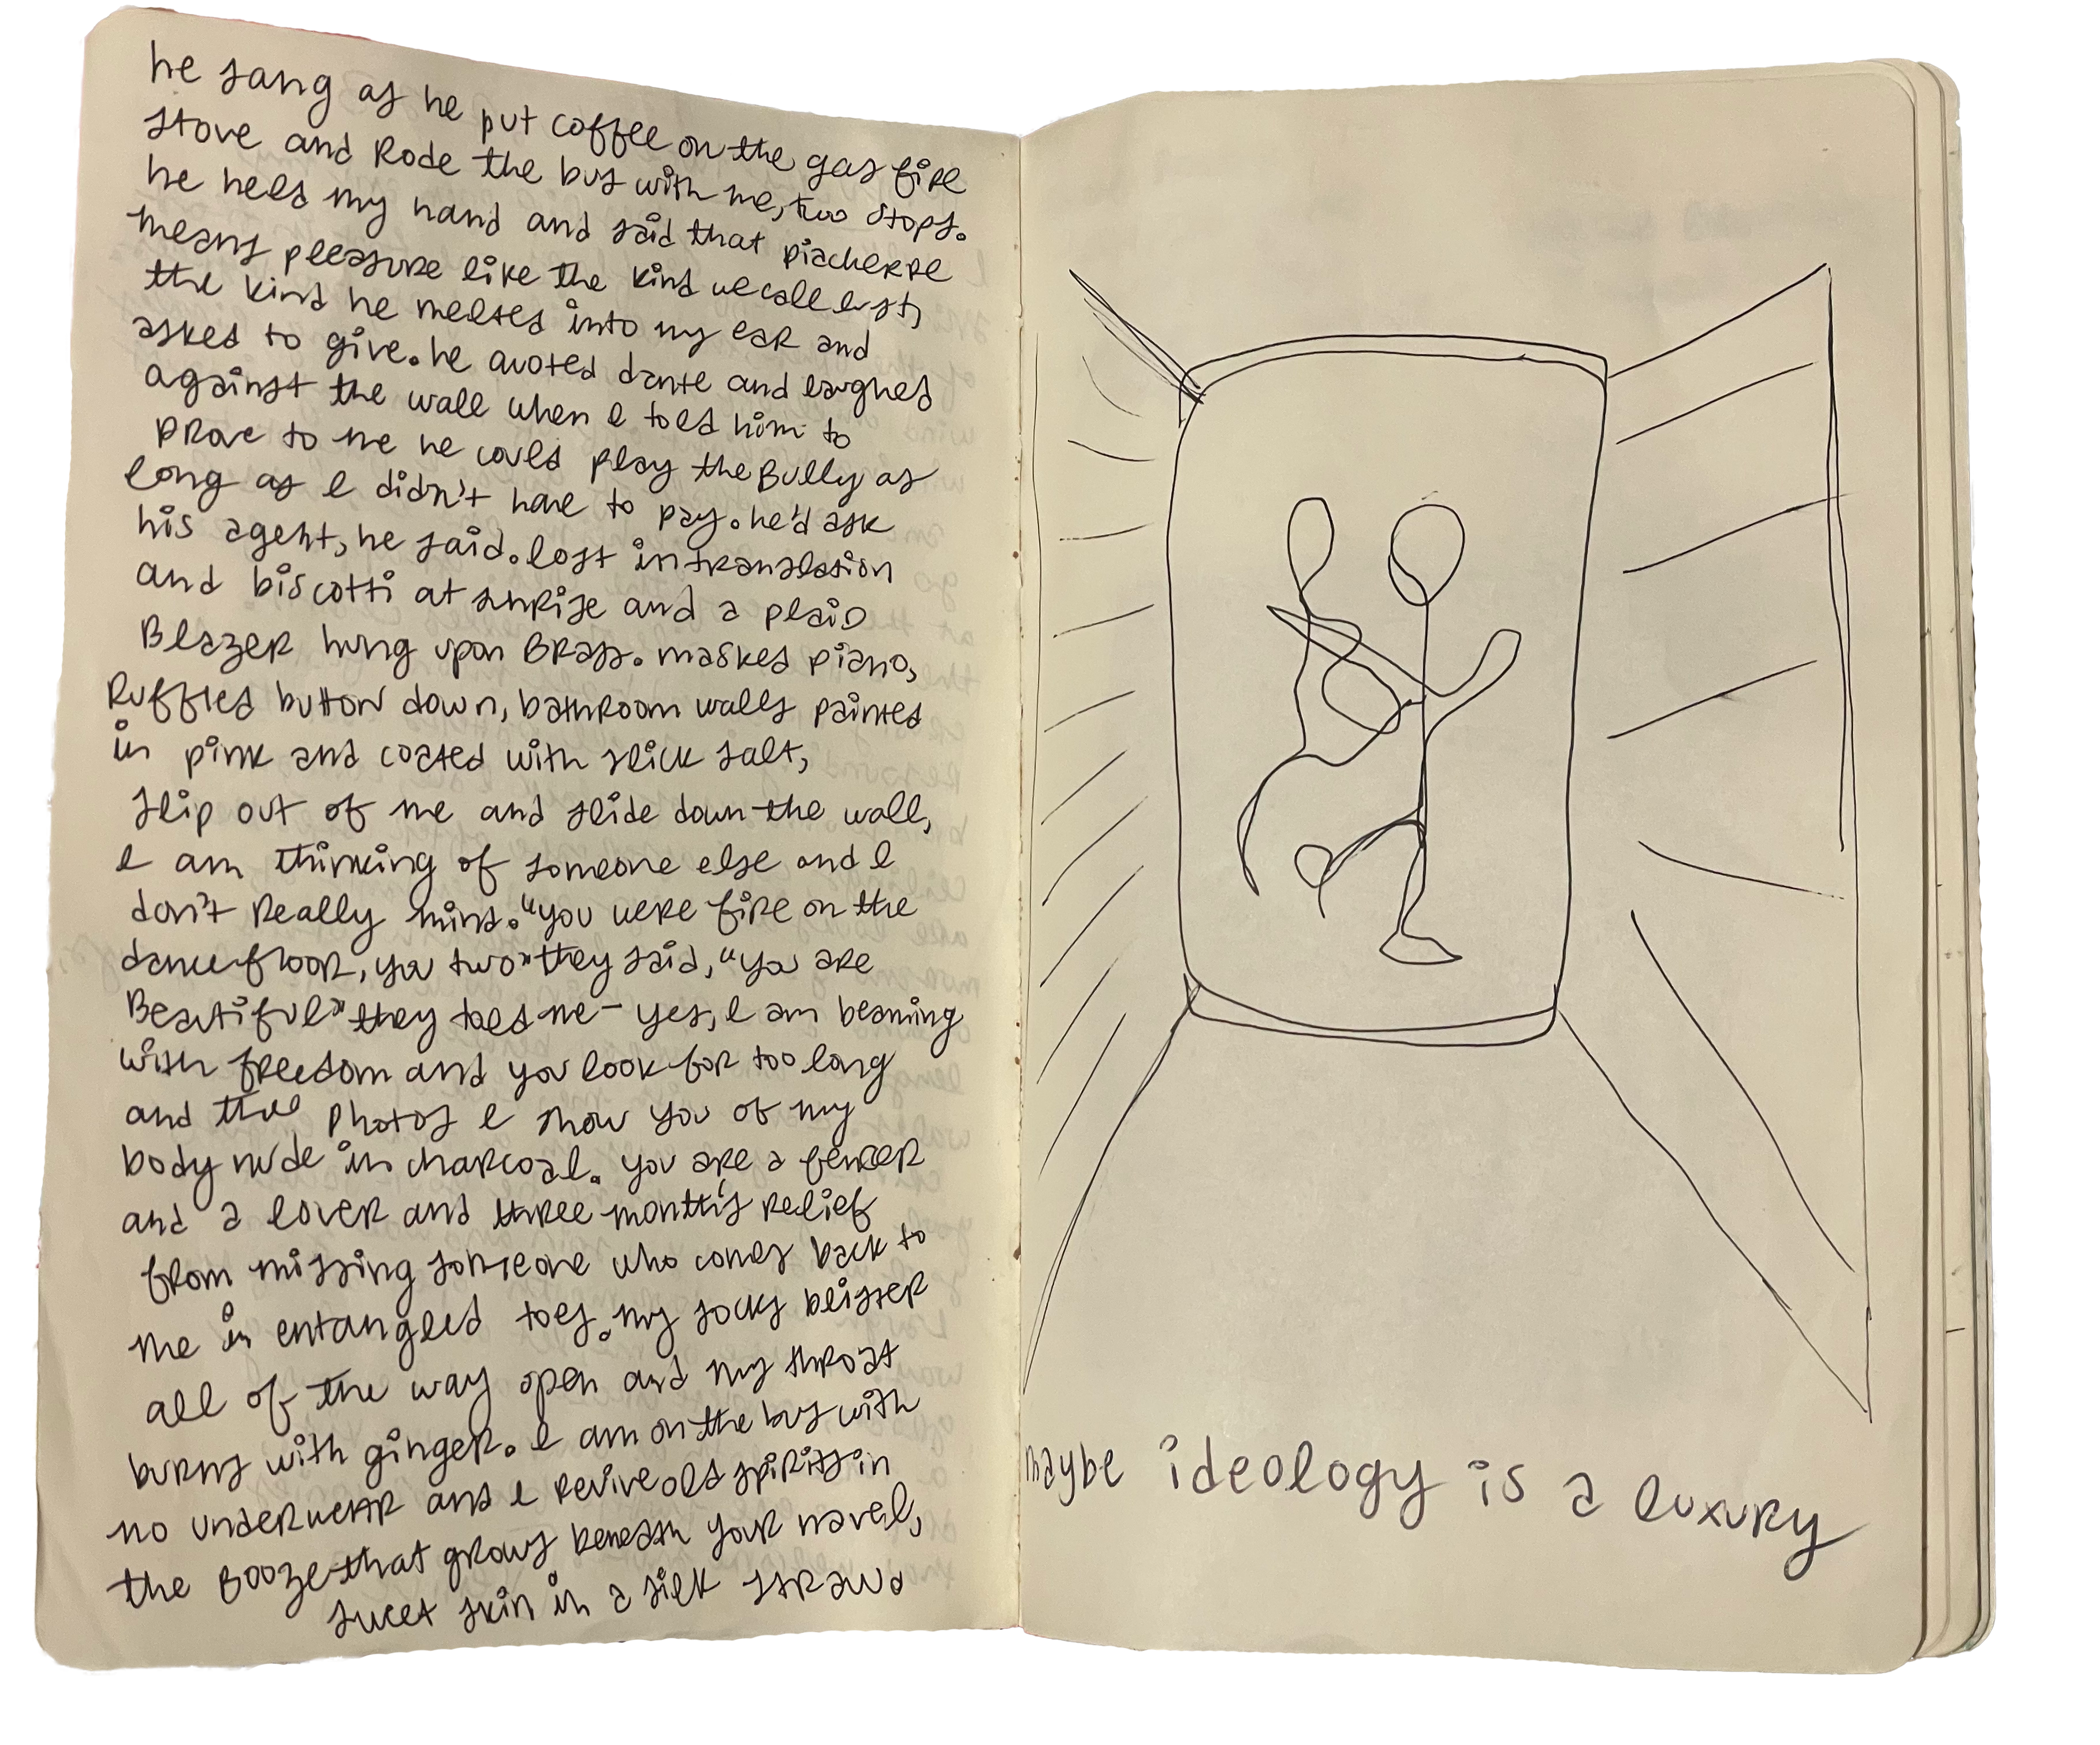 he sang as he put coffee on the gas fire
stove and Rode the bus with me, two stops.
he held my hand and said that piacherre
means pleasure like the kind we call lust,
the kind he melted into my ear and
asked to give. he quoted dante and laughed
against the wall when I told him to
prove to me he could play the Bully as
long as I didn't have to pay. he'd ask
his agent, he said. lost in translation
and biscotti at sunrise and a plaid
Blazer hung upon Brass. masked piano,
Ruffled button down, bathroom walls painted
in pink and coated with slick salt,
slip out of me and slide down the wall,
I am thinking of someone else and I
don't Really mind. "you were fire on the
dancefloor, you two" they said, "you are
Beautiful" they told me - yes, I am beaming
with freedom and you look for too long
and the photos I show you of my
body nude in charcoal. you are a fencer
and a lover and three month's relief
from missing someone who comes back to
me in entangled toes. my socks blister
all of the way open and my throat
burns with ginger. I am on the bus with
no underwear and I revive old spirits in
the Booze that grows beneath your navel,
sweet skin in a silk straw.
maybe ideology is a luxury